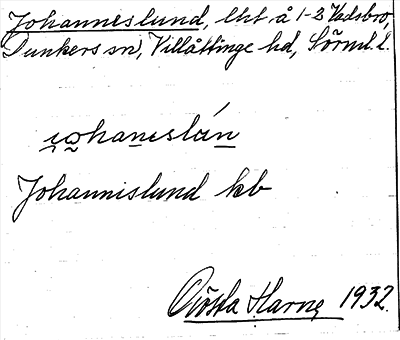 Johanneslund, lht å 1-2 Vadsbro,
Dunkers sn, Villåttinge hd, Sörml. l.
johaneslún
Johannislund kb
Gösta Harne 1932.